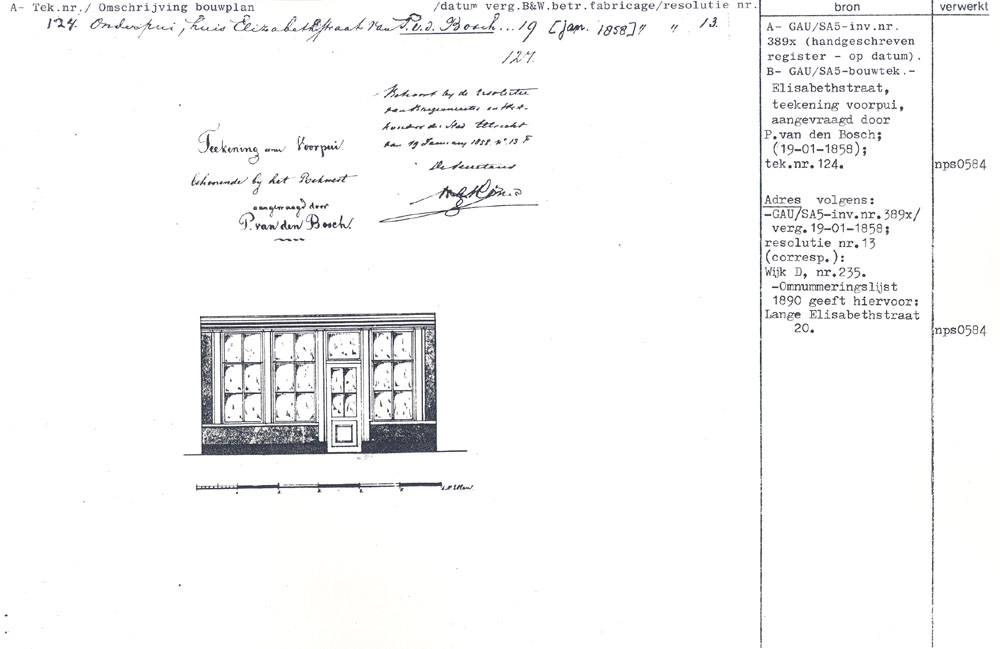 A- Tek.nr./ Omschrijving bouwplan /datum verg.B&W.betr.fabricage/resolutie nr.
bron
verwerkt
124. Onderpui, huis Elizabethstraat van P.v.d. Bosch... 19 [jan. 1858] " " 13.
124.
Behoort bij de resolutie
van Burgemeester en Wet-
houders der Stad Utrecht
van 19 Januarij 1858 No. 13 F
De Secretaris
Teekening van Voorpui
behoorende bij het Rekwest
aangevraagd door
P. van den Bosch.
A- GAU/SA5-inv.nr.
389x (handgeschreven
register - op datum).
B- GAU/SA5-bouwtek.-
Elisabethstraat,
teekening voorpui,
aangevraagd door
P.van den Bosch;
(19-01-1858);
tek.nr.124.
nps0584
Adres volgens:
-GAU/SA5-inv.nr.389x/
verg.19-01-1858;
resolutie nr.13
(corresp.):
Wijk D, nr.235.
-Omnummeringslijst
1890 geeft hiervoor:
Lange Elisabethstraat
20.
nps0584